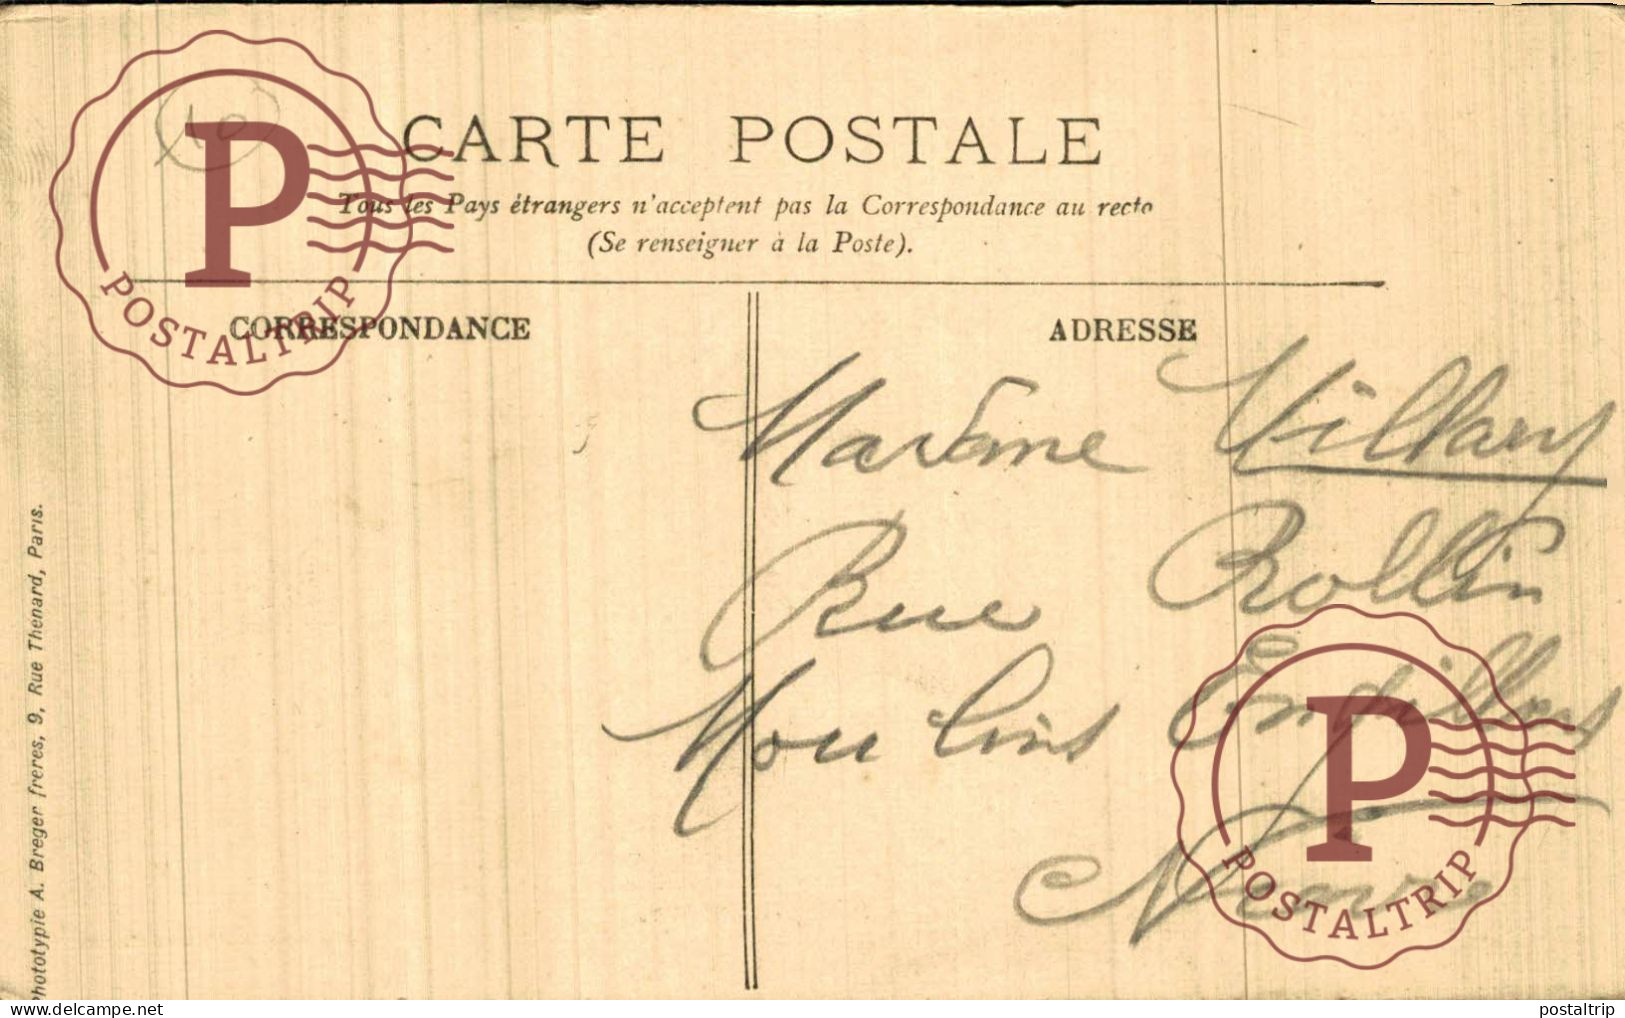 10
CARTE POSTALE
Tous les Pays étrangers n'acceptent pas la Correspondance au recto
(Se renseigner à la Poste).
CORRESPONDANCE
ADRESSE
Madame Millany
Rue Rollin
Moulins Engilbert
Nièvre
Phototypie A. Breger freres, 9, Rue Thenard, Paris.
P
POSTALTRIP
P
POSTALTRIP
delcampe.net
postaltrip